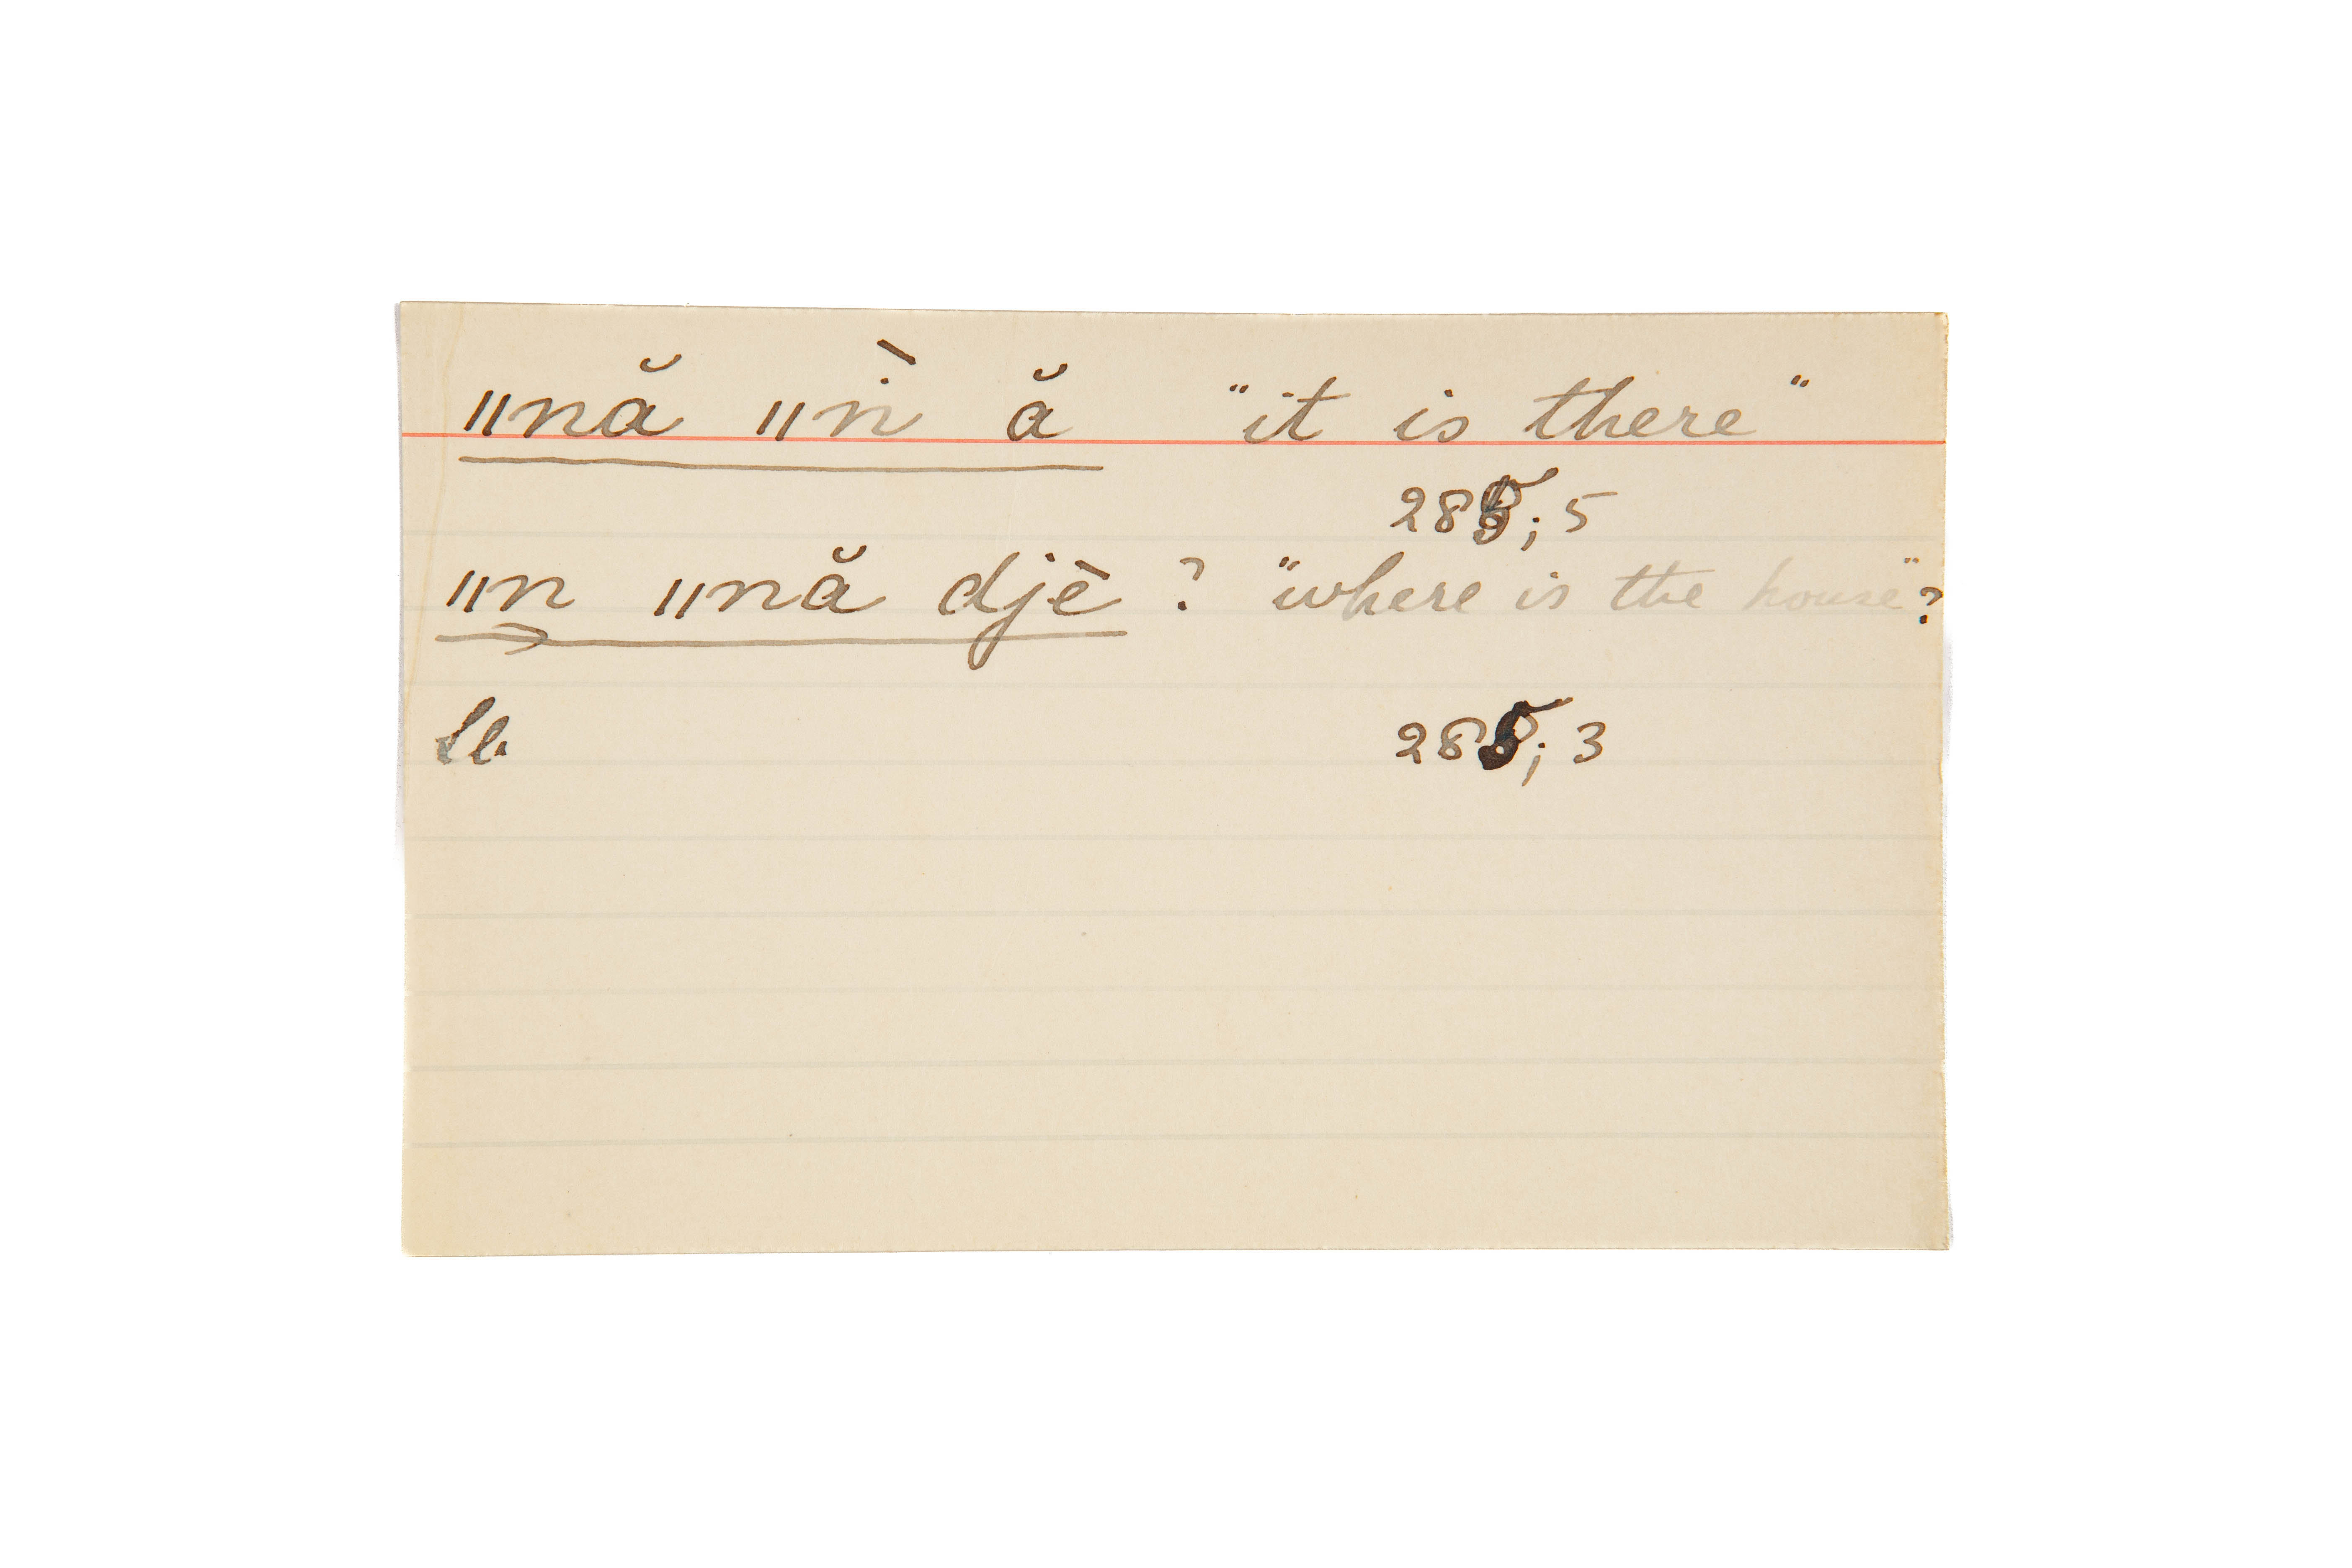 ǁnă ǁǹ ă "it is there"
285; 5
ǁn ǁnă djē ? "where is the house"?
285; 3